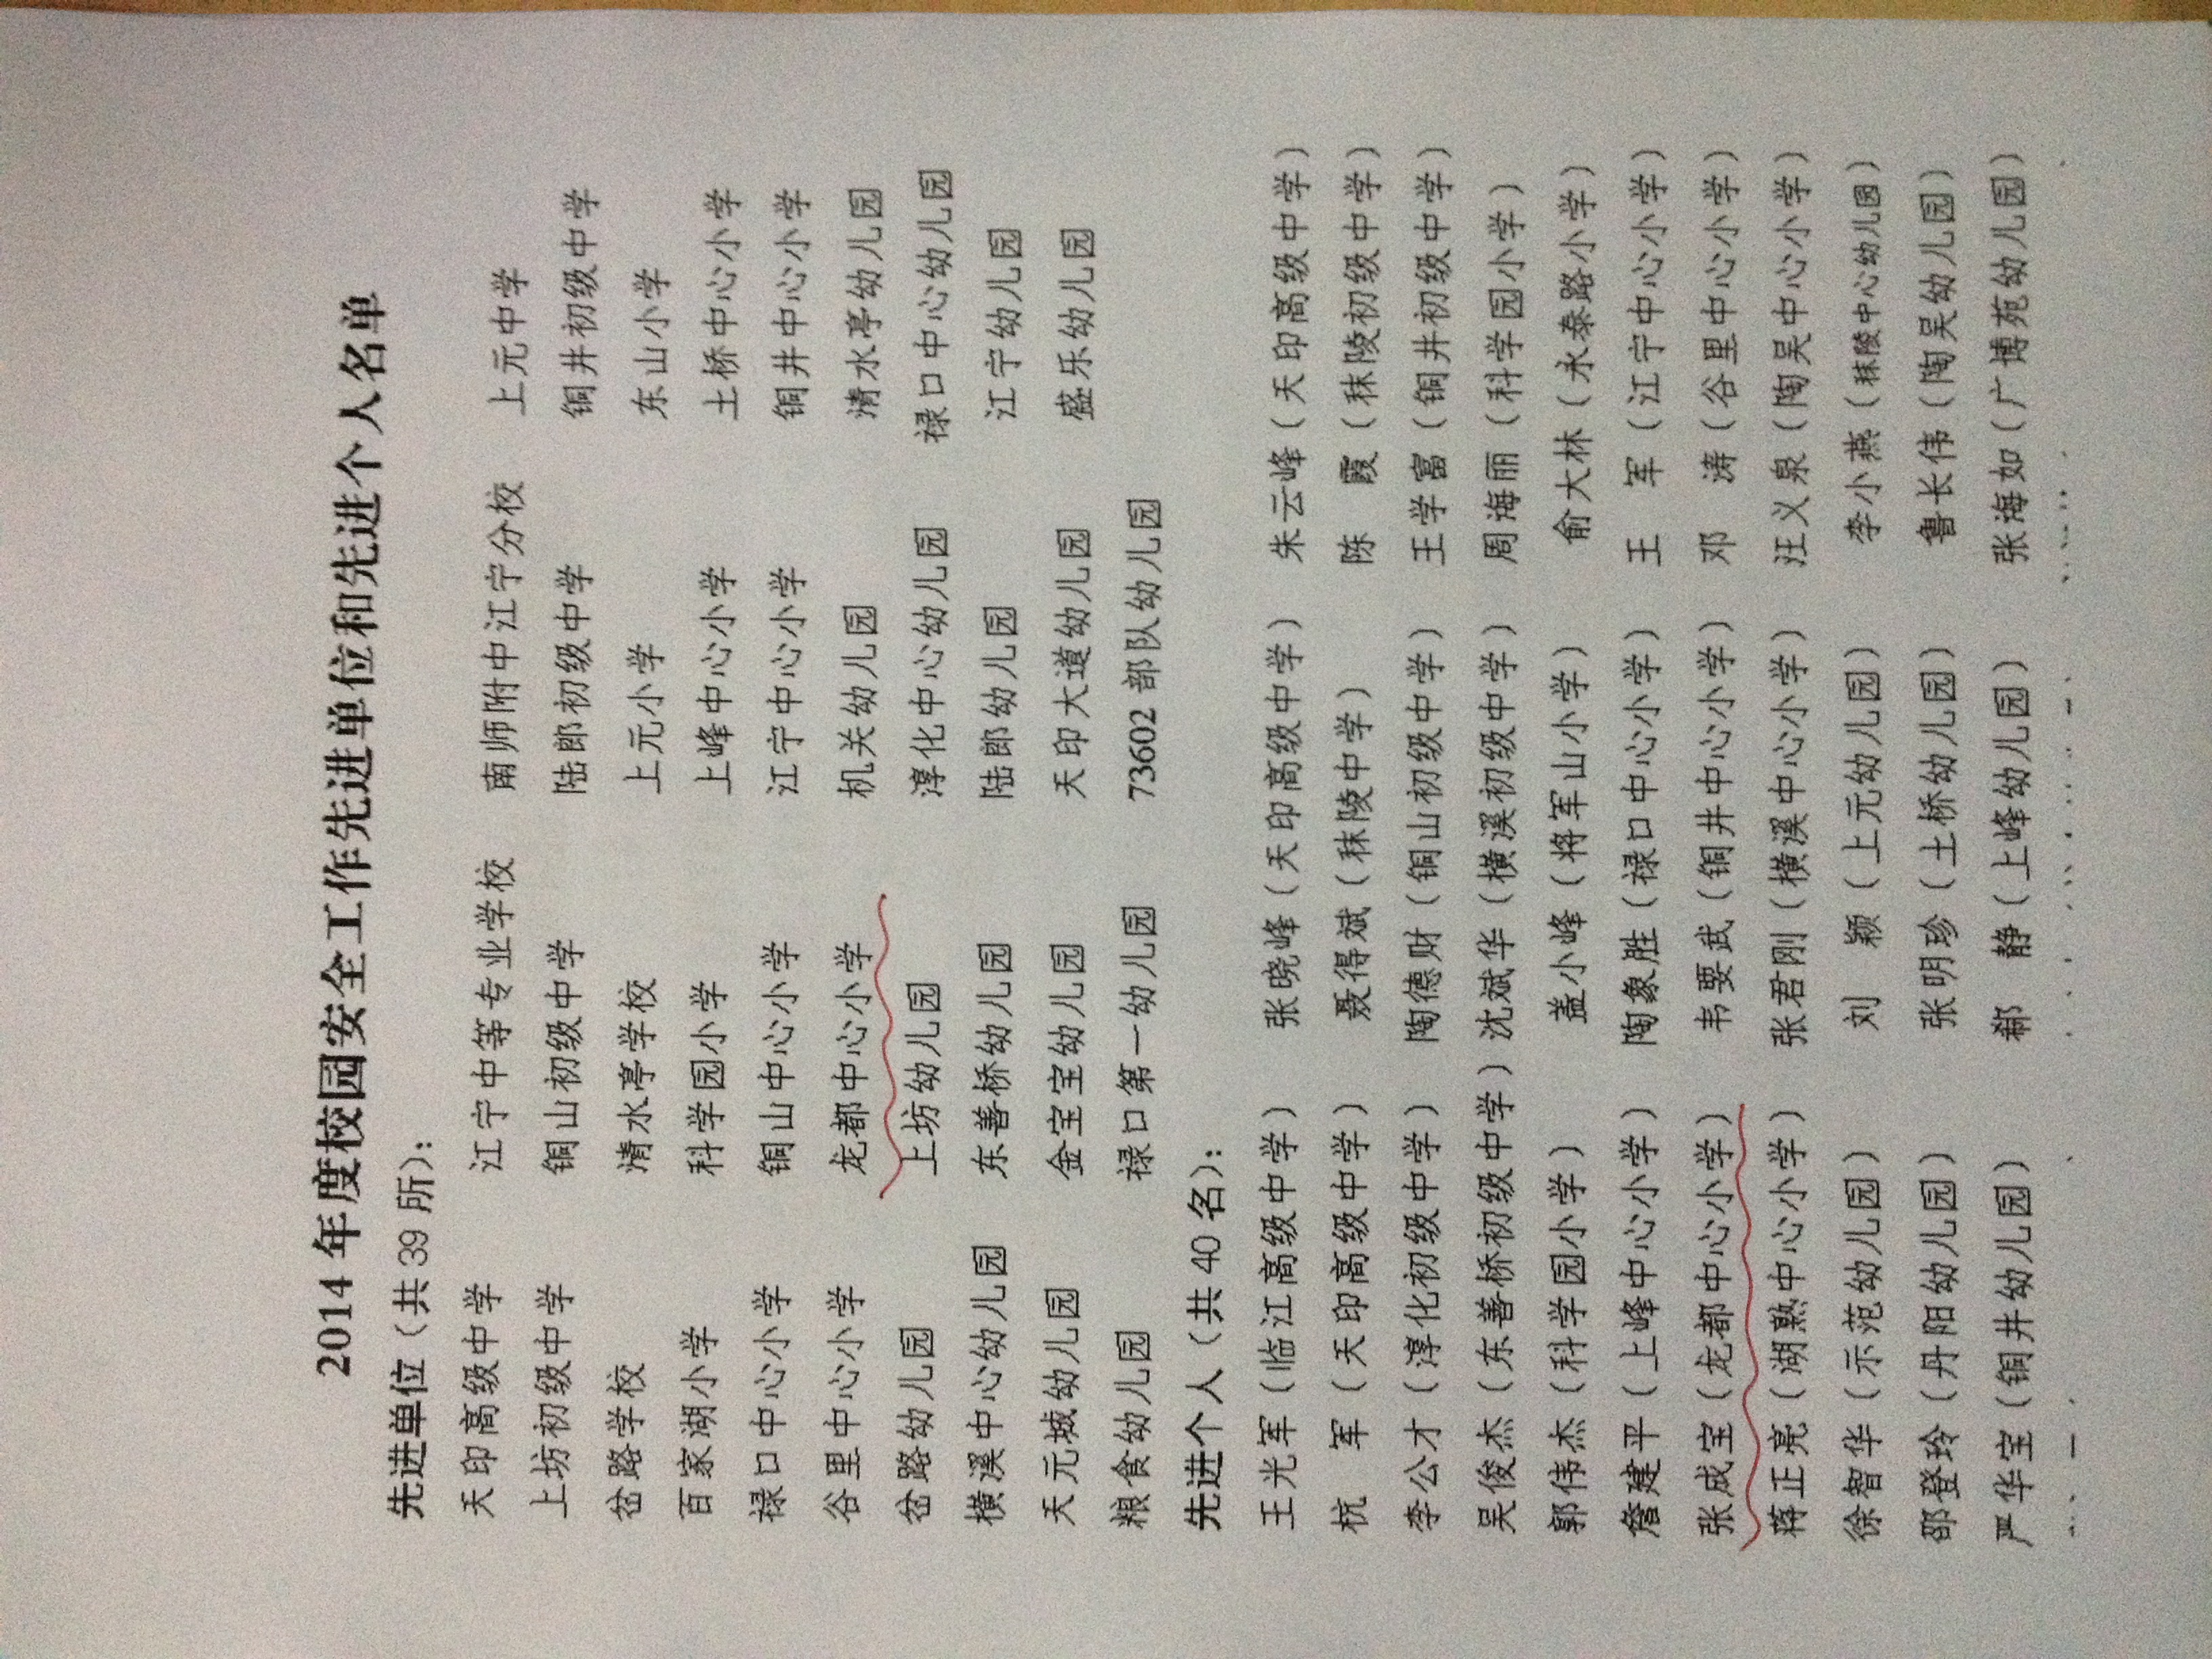 2014 年度校园安全工作先进单位和先进个人名单
先进单位（共 39 所）：
天印高级中学 江宁中等专业学校 南师附中江宁分校 上元中学
上坊初级中学 铜山初级中学 陆郎初级中学 铜井初级中学
岔路学校 清水亭学校 上元小学 东山小学
百家湖小学 科学园小学 上峰中心小学 土桥中心小学
禄口中心小学 铜山中心小学 江宁中心小学 铜井中心小学
谷里中心小学 龙都中心小学 机关幼儿园 清水亭幼儿园
岔路幼儿园 上坊幼儿园 淳化中心幼儿园 禄口中心幼儿园
横溪中心幼儿园 东善桥幼儿园 陆郎幼儿园 江宁幼儿园
天元城幼儿园 金宝宝幼儿园 天印大道幼儿园 盛乐幼儿园
粮食幼儿园 禄口第一幼儿园 73602 部队幼儿园
先进个人（共 40 名）：
王光军（临江高级中学） 张晓峰（天印高级中学） 朱云峰（天印高级中学）
杭 军（天印高级中学） 聂得斌（秣陵中学） 陈 霞（秣陵初级中学）
李公才（淳化初级中学） 陶德财（铜山初级中学） 王学富（铜井初级中学）
吴俊杰（东善桥初级中学） 沈斌华（横溪初级中学） 周海丽（科学园小学）
郭伟杰（科学园小学） 盖小峰（将军山小学） 俞大林（永泰路小学）
詹建平（上峰中心小学） 陶象胜（禄口中心小学） 王 军（江宁中心小学）
张成宝（龙都中心小学） 韦要武（铜井中心小学） 邓 涛（谷里中心小学）
蒋正亮（湖熟中心小学） 张君刚（横溪中心小学） 汪义泉（陶吴中心小学）
徐智华（示范幼儿园） 刘 颖（上元幼儿园） 李小燕（秣陵中心幼儿园）
邵登玲（丹阳幼儿园） 张明珍（土桥幼儿园） 鲁长伟（陶吴幼儿园）
严华宝（铜井幼儿园） 郗 静（上峰幼儿园） 张海如（广博苑幼儿园）